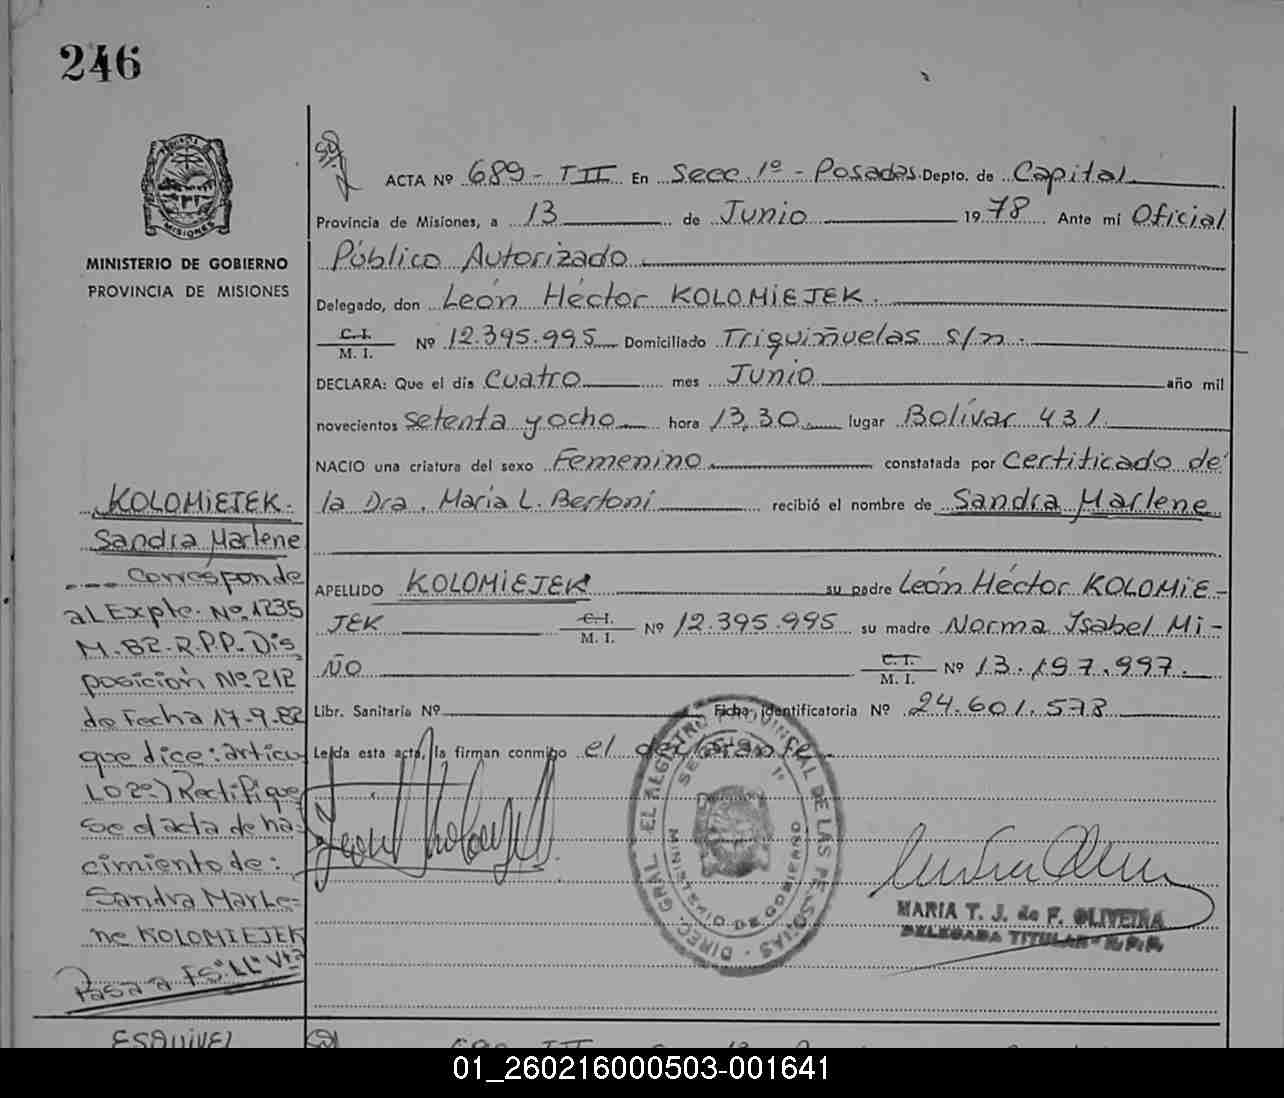 246
MINISTERIO DE GOBIERNO
PROVINCIA DE MISIONES
MISIONES
ACTA Nº 689 - III En Secc. 1º - Posadas Depto. de Capital
Provincia de Misiones, a 13 de Junio 1978 Ante mí Oficial
Público Autorizado
Delegado, don León Héctor KOLOMIEJEK.
C. I.
M. I. Nº 12.395.995 Domiciliado Triquiñuelas s/n.
DECLARA: Que el día cuatro mes Junio año mil
novecientos setenta y ocho hora 13,30 lugar Bolívar 431.
NACIO una criatura del sexo Femenino constatada por Certificado de
la Dra. María L. Bertoni recibió el nombre de Sandra Marlene
APELLIDO KOLOMIEJEK su padre León Héctor KOLOMIE-
JEK C. I. M. I. Nº 12.395.995 su madre Norma Isabel MI-
ÑO C. I. M. I. Nº 13.197.997.
Libr. Sanitaria Nº Ficha identificatoria Nº 24.601.578
Leída esta acta, la firman conmigo el declarante.
KOLOMIEJEK.
Sandra Marlene
Corresponde
al Expte. Nº. 1235
M. 82-R.P.P. Dis
posición Nº. 212
de Fecha 17-9-82
que dice: artícu
LO 2º) Rectifique
se el acta de na
cimiento de:
Sandra Marle-
ne KOLOMIEJEK
Pasa a Fs. "LL" Vta
DIREC. GRAL. EL REGISTRO PROVINCIAL DE LAS PERSONAS
SECCION 1º
MINISTERIO DE GOBIERNO
MARIA T. J. de F. OLIVEIRA
DELEGADA TITULAR - R.P.P.
ESQUIVEL
01_260216000503-001641